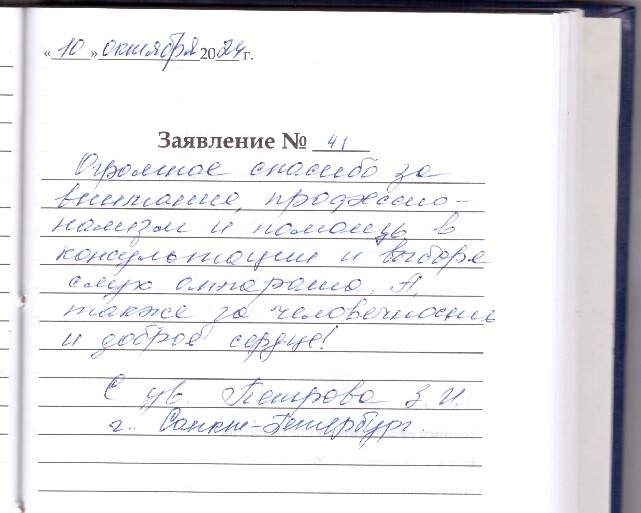 « 10 » октября 2024 г.
Заявление № 41
Огромное спасибо за
внимание, професио-
нализм и помощь в
консультации и выборе
слух аппарата. А
также за человечность
и доброе сердце!
С ув. Петрова З.И.
г. Санкт-Петербург.